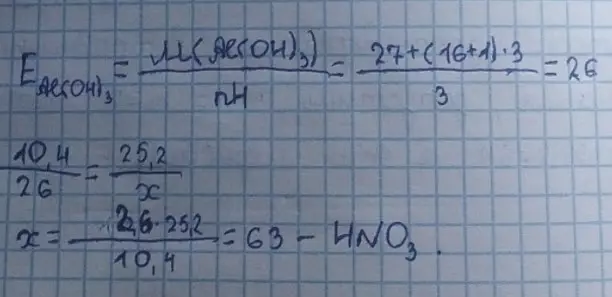 E Al(OH)₃ = M(Al(OH)₃) / nH = 27+(16+1)·3 / 3 = 26
10,4 / 26 = 25,2 / x
x = 26·25,2 / 10,4 = 63 – HNO₃.